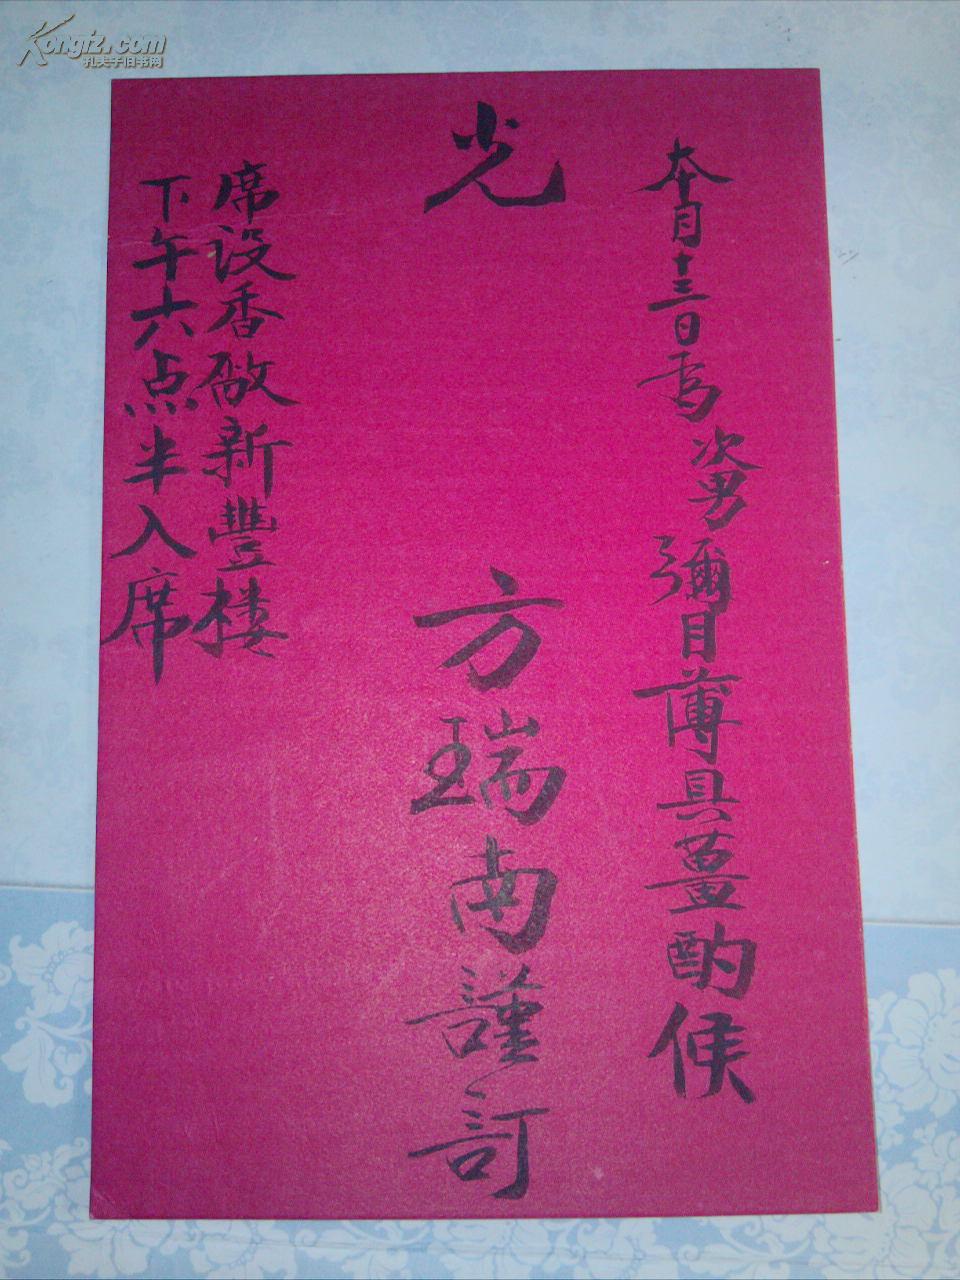 本月十三日為次男彌月薄具薑酌候
光
方瑞南謹訂
席设香敬新豐楼
下午六点半入席
Kongfz.com
孔夫子旧书网